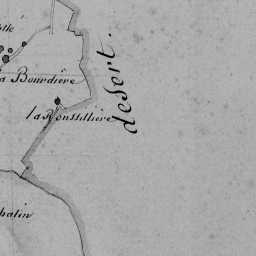 a Bourdière
la Roussillière
desert.
halin